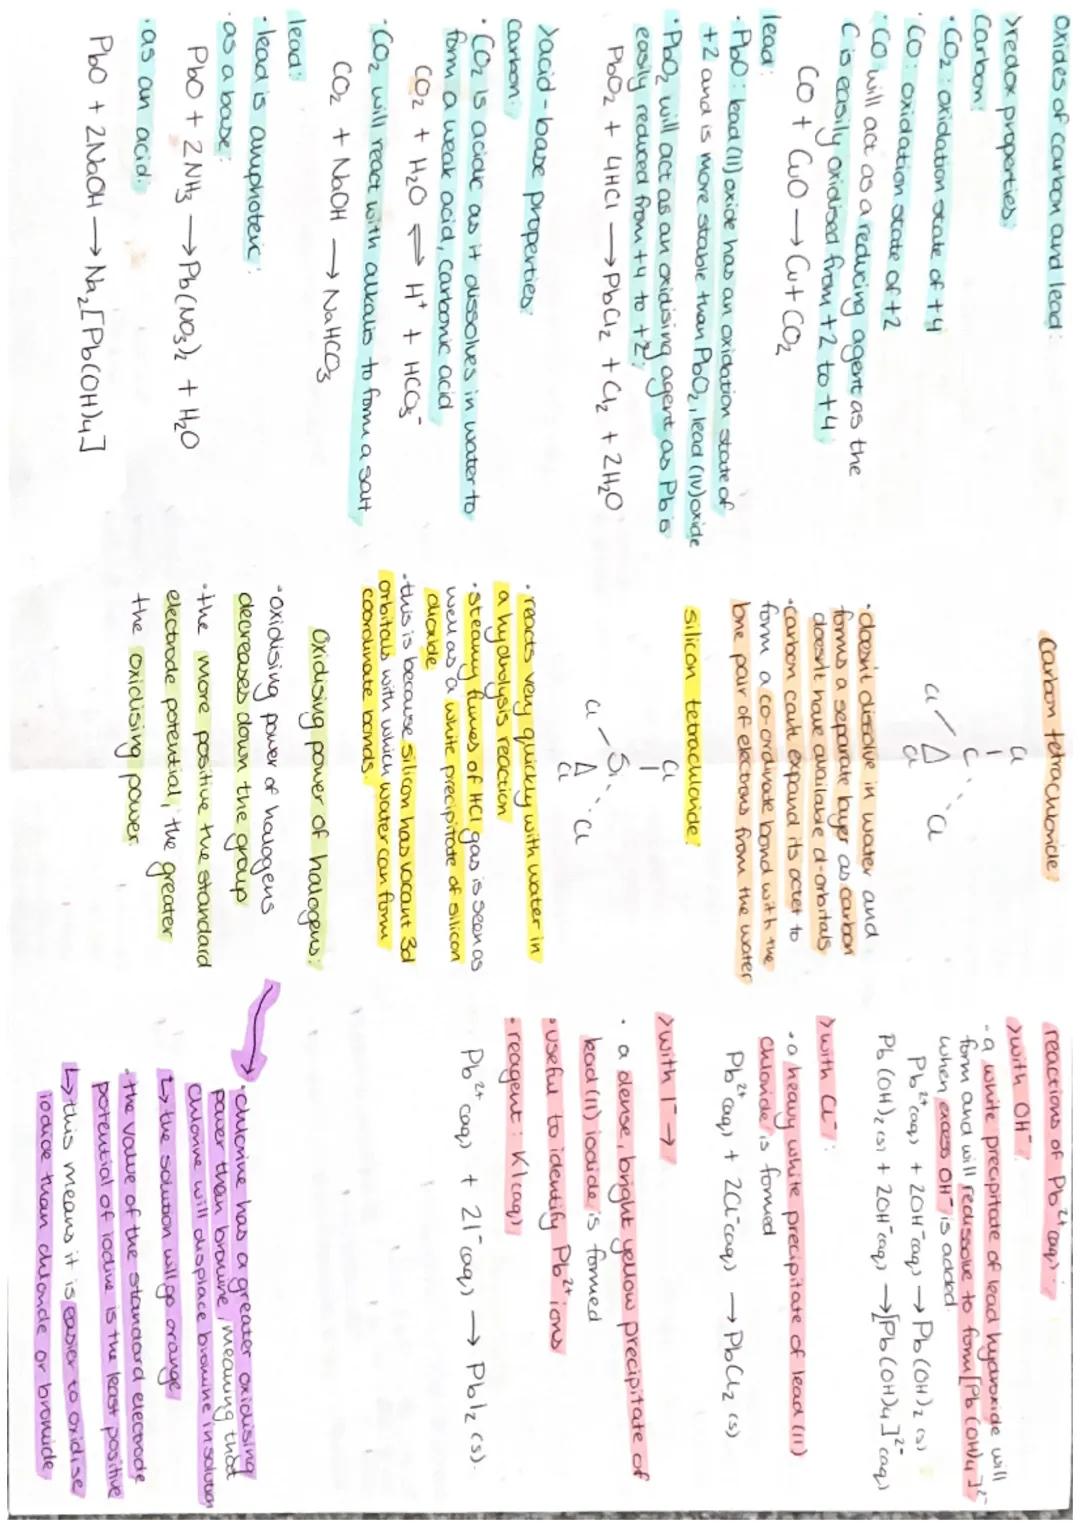 oxides of carbon and lead:
>redox properties:
Carbon:
·CO₂: oxidation state of +4
·CO: oxidation state of +2
·CO will act as a reducing agent as the
C is easily oxidised from +2 to +4
CO + CuO → Cu + CO₂
lead:
·PbO: lead(II) oxide has an oxidation state of
+2 and is more stable than PbO₂, lead (IV) oxide
·PbO₂ will act as an oxidising agent as Pb is
easily reduced from +4 to +2:
PbO₂ + 4HCl → PbCl₂ + Cl₂ + 2H₂O
>acid-base properties:
carbon:
·CO₂ is acidic as it dissolves in water to
form a weak acid, carbonic acid
CO₂ + H₂O ⇌ H⁺ + HCO₃⁻
·CO₂ will react with alkalis to form a salt
CO₂ + NaOH → NaHCO₃
lead:
·lead is amphoteric:
·as a base:
PbO + 2NH₃ → Pb(NO₃)₂ + H₂O
·as an acid:
PbO + 2NaOH → Na₂[Pb(OH)₄]
Carbon tetrachloride:
Cl
C
Cl
Cl
Cl
·doesn't dissolve in water and
forms a separate layer as carbon
doesn't have available d-orbitals
·carbon can't expand its octet to
form a co-ordinate bond with the
lone pair of electrons from the water
silicon tetrachloride:
Cl
Si
Cl
Cl
Cl
·reacts very quickly with water in
a hydrolysis reaction
·steamy fumes of HCl gas is seen as
well as a white precipitate of silicon
dioxide
·this is because silicon has vacant 3d
orbitals with which water can form
coordinate bonds.
Oxidising power of halogens:
·oxidising power of halogens
decreases down the group
·the more positive the standard
electrode potential, the greater
the oxidising power.
reactions of Pb²⁺(aq):
>with OH⁻:
·a white precipitate of lead hydroxide will
form and will redissolve to form [Pb(OH)₄]²⁻
when excess OH⁻ is added
Pb²⁺(aq) + 2OH⁻(aq) → Pb(OH)₂(s)
Pb(OH)₂(s) + 2OH⁻(aq) → [Pb(OH)₄]²⁻(aq)
>with Cl⁻:
·a heavy white precipitate of lead (II)
chloride is formed
Pb²⁺(aq) + 2Cl⁻(aq) → PbCl₂(s)
>with I⁻ →
·a dense, bright yellow precipitate of
lead(II) iodide is formed
·useful to identify Pb²⁺ ions
·reagent: KI(aq)
Pb²⁺(aq) + 2I⁻(aq) → PbI₂(s).
·chlorine has a greater oxidising
power than bromine, meaning that
chlorine will displace bromine in solution
↳ the solution will go orange
·the value of the standard electrode
potential of iodine is the least positive
↳ this means it is easier to oxidise
iodide than chloride or bromide